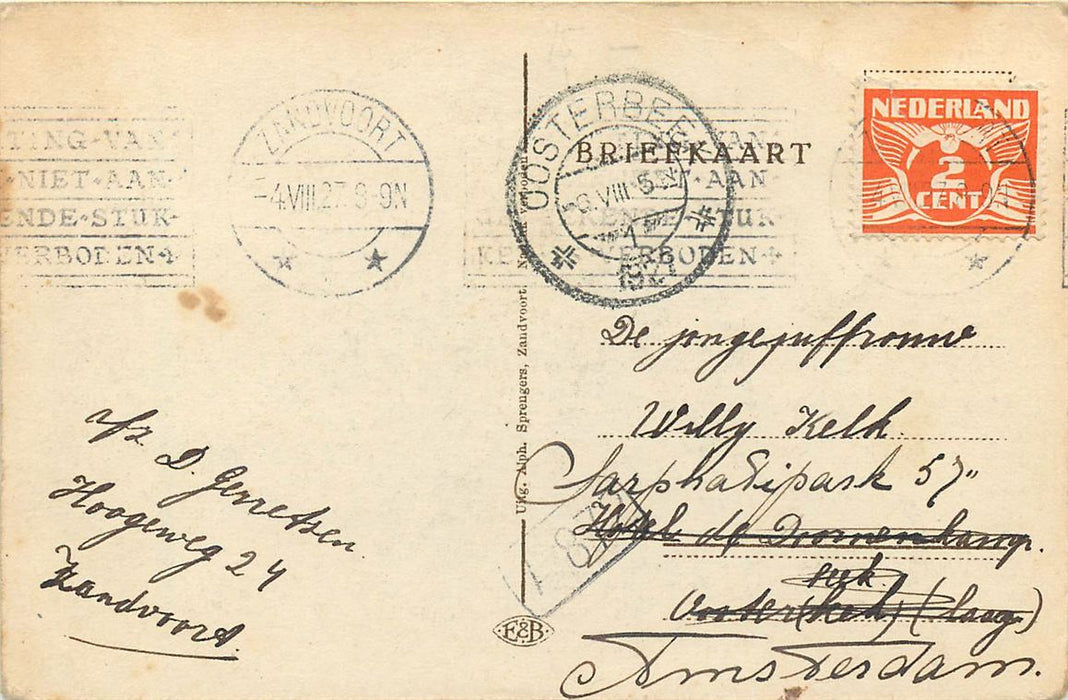 TING·VAN
NIET·AAN
ENDE·STUK
ERBODEN
ZANDVOORT
-4.VIII.27. 8-9N
OOSTERBEEK
VIII
1927
BRIEFKAART
VAN
AAN
KENDE·STUK
ERBODEN
NEDERLAND
2
CENT
Uitg. Alph. Sprengers, Zandvoort.
De jongejuffrouw
Willy Kelk.
Sarphatipark 57"
Hotel de Doornenkamp.
Ooster(beek) (laag)
Amsterdam.
afz D. Gerretsen
Hoogeweg 24
Zandvoort
E&B